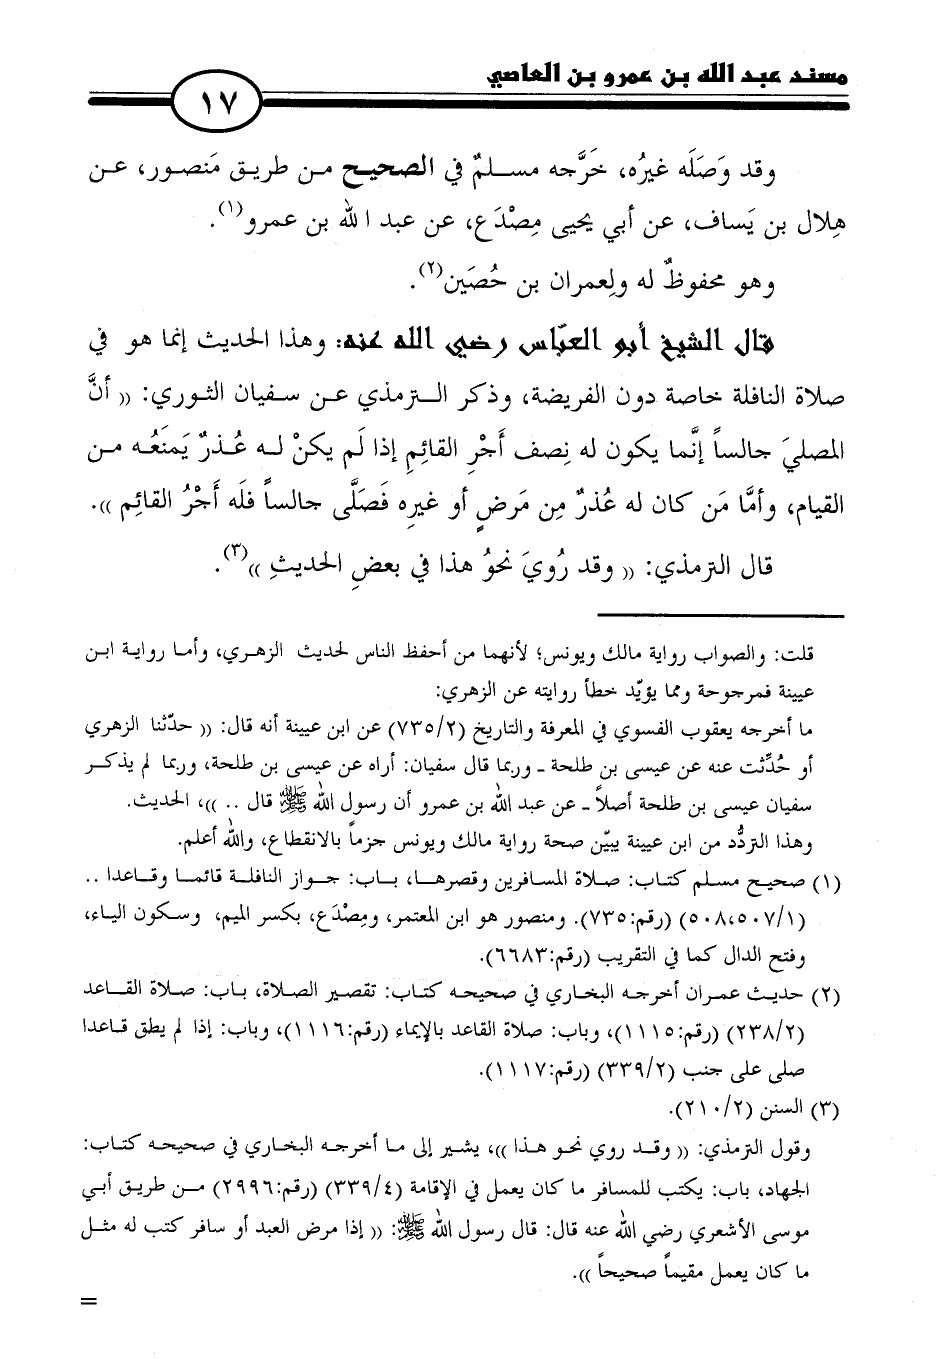 مسند عبد الله بن عمرو بن العاصي
١٧
وقد وَصَلَه غيرُه، خَرَّجه مسلمٌ في الصحيح من طريق مَنصور، عن
هِلال بن يَساف، عن أبي يحيى مِصْدَع، عن عبد الله بن عمرو(١).
وهو محفوظٌ له ولِعمران بن حُصَين(٢).
قال الشيخ أبو العبّاس رضي الله عنه: وهذا الحديث إنما هو في
صلاة النافلة خاصة دون الفريضة، وذكر الترمذي عن سفيان الثوري: (( أنَّ
المصليَ جالساً إنَّما يكون له نِصف أَجْرِ القائمِ إذا لَم يكنْ له عُذرٌ يَمنَعُه من
القيام، وأمَّا مَن كان له عُذرٌ مِن مَرضٍ أو غيرِه فَصَلَّى جالساً فلَه أَجْرُ القائم )).
قال الترمذي: (( وقد رُويَ نحوُ هذا في بعضِ الحديثِ ))(٣).
قلت: والصواب رواية مالك ويونس؛ لأنهما من أحفظ الناس لحديث الزهري، وأما رواية ابن
عيينة فمرجوحة ومما يؤيّد خطأ روايته عن الزهري:
ما أخرجه يعقوب الفسوي في المعرفة والتاريخ (٧٣٥/٢) عن ابن عيينة أنه قال: (( حدّثنا الزهري
أو حُدِّثت عنه عن عيسى بن طلحة ـ وربما قال سفيان: أراه عن عيسى بن طلحة، وربما لم يذكر
سفيان عيسى بن طلحة أصلاً ـ عن عبد الله بن عمرو أن رسول الله ﷺ قال .. ))، الحديث.
وهذا التردُّد من ابن عيينة يبيّن صحة رواية مالك ويونس جزماً بالانقطاع، والله أعلم.
(١) صحيح مسلم كتاب: صلاة المسافرين وقصرها، باب: جواز النافلة قائما وقاعدا ..
(٥٠٨،٥٠٧/١) (رقم:٧٣٥). ومنصور هو ابن المعتمر، ومِصْدَع، بكسر الميم، وسكون الياء،
وفتح الدال كما في التقريب (رقم:٦٦٨٣).
(٢) حديث عمران أخرجه البخاري في صحيحه كتاب: تقصير الصلاة، باب: صلاة القاعد
(٢٣٨/٢) (رقم:١١١٥)، وباب: صلاة القاعد بالإيماء (رقم:١١١٦)، وباب: إذا لم يطق قاعدا
صلى على جنب (٣٣٩/٢) (رقم:١١١٧).
(٣) السنن (٢١٠/٢).
وقول الترمذي: (( وقد روي نحو هذا ))، يشير إلى ما أخرجه البخاري في صحيحه كتاب:
الجهاد، باب: يكتب للمسافر ما كان يعمل في الإقامة (٣٣٩/٤) (رقم:٢٩٩٦) من طريق أبي
موسى الأشعري رضي الله عنه قال: قال رسول الله ﷺ: (( إذا مرض العبد أو سافر كتب له مثل
ما كان يعمل مقيماً صحيحاً )).
=